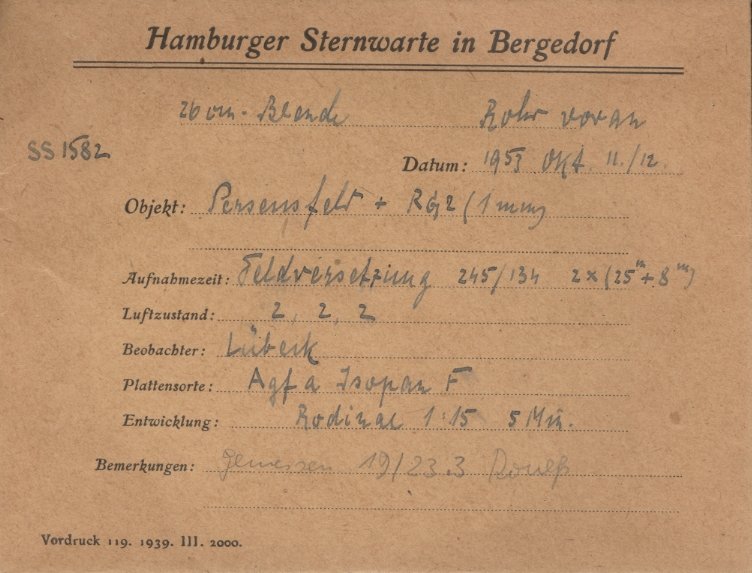 Hamburger Sternwarte in Bergedorf
26 cm. Blende Rohr voran
SS 1582
Datum: 1953 Okt. 11./12.
Objekt: Perseusfeld + RG2 (1 mm)
Aufnahmezeit: Feldversetzung 245/134 2x(25m + 8m)
Luftzustand: 2, 2, 2
Beobachter: Lübeck
Plattensorte: Agfa Isopan F
Entwicklung: Rodinal 1:15 5 Min.
Bemerkungen: gemessen 19/23.3
Vordruck 119. 1939. III. 2000.